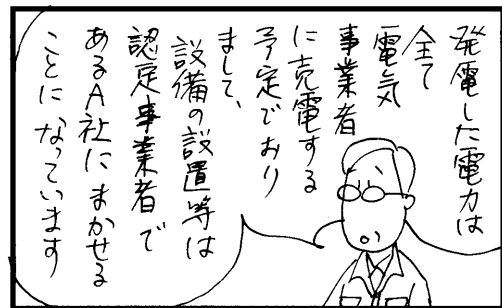 発電した電力は
全て
電気
事業者
に売電する
予定でおり
まして、
設備の設置等は
認定事業者で
あるA社にまかせる
ことになっています